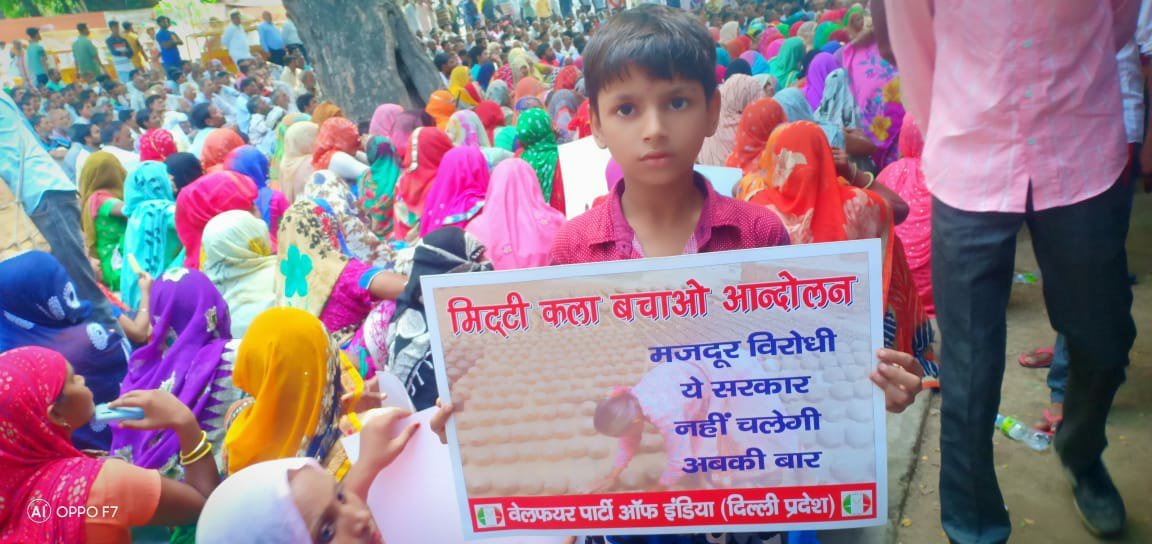 मिट्टी कला बचाओ आन्दोलन
मजदूर विरोधी
ये सरकार
नहीं चलेगी
अबकी बार
वेलफेयर पार्टी ऑफ इंडिया (दिल्ली प्रदेश)
AI OPPO F7